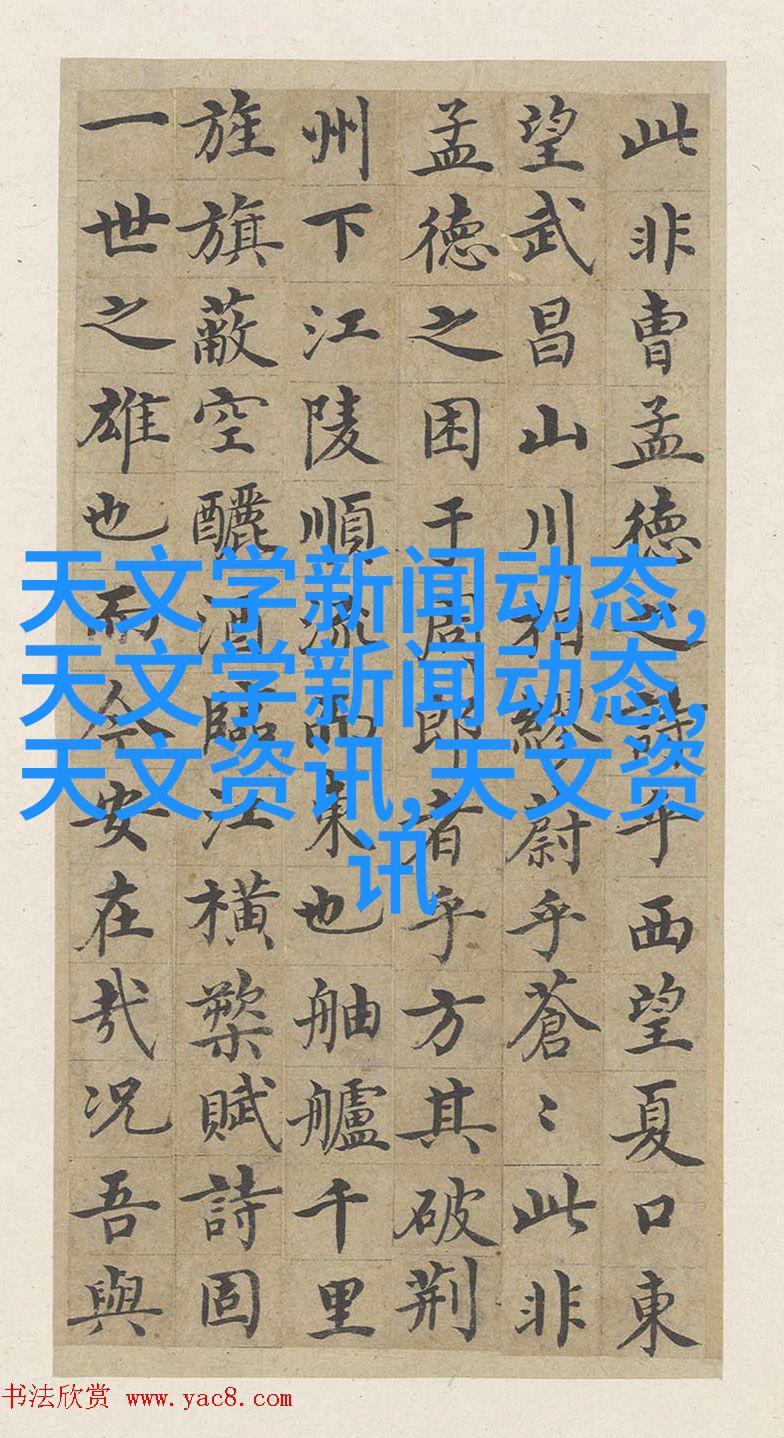 此非曹孟德之詩乎西望夏口東
望武昌山川相繆蔚乎蒼〻此非
孟德之困于周郎者乎方其破荆
州下江陵順流而東也舳艫千里
旌旗蔽空釃酒臨江橫槊賦詩固
一世之雄也而今安在哉况吾與
天文学新闻动态,
天文学新闻动态,
天文资讯,天文资
讯
书法欣赏 www.yac8.com